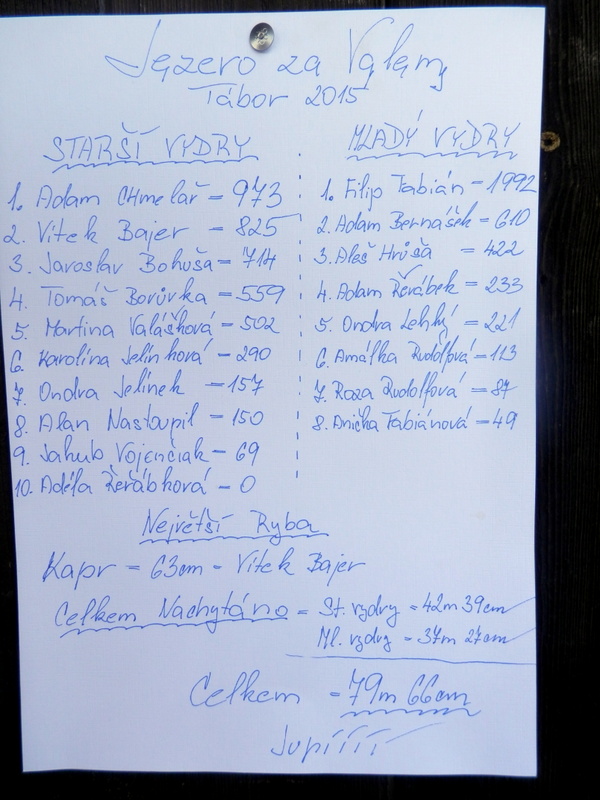 Jezero za Valem
Tábor 2015
STARŠÍ VYDRY
1. Adam CHmelař = 973
2. Vítek Bajer = 825
3. Jaroslav Bohuša = 714
4. Tomáš Borůvka = 559
5. Martina Valášková = 502
6. Karolína Jelínková = 290
7. Ondra Jelínek = 157
8. Alan Nastoupil = 150
9. Jakub Vojenčiak = 69
10. Adéla Řeřábková = 0
MLADÝ VYDRY
1. Filip Fabián = 1992
2. Adam Bernášek = 610
3. Aleš Hrůša = 422
4. Adam Řeřábek = 233
5. Ondra Lehký = 221
6. Amálka Rudolfová = 113
7. Roza Rudolfová = 87
8. Anička Fabiánová = 49
Největší Ryba
Kapr = 63cm - Vítek Bajer
Celkem Nachytáno = St. vydry = 42m 39cm
Ml. vydry = 37m 27cm
Celkem = 79m 66cm
Jupíííí